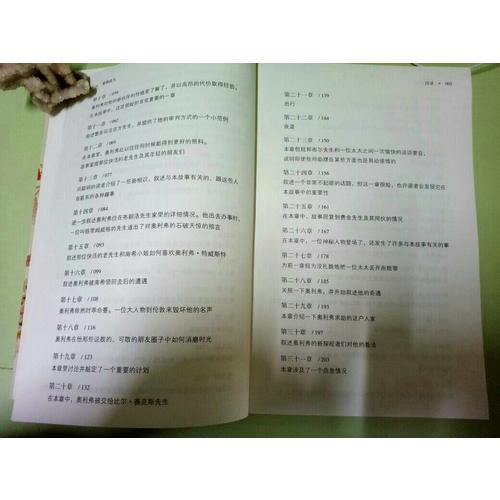 雾都孤儿
第十章 /056
在本故事中，这是很短的但是重要的一章
第十一章 /062
第十二章 /069
第十三章 /077
有联系的各种趣事
第十四章 /084
进一步叙述奥利弗住在布朗洛先生家里的详细情况。他出去办事时，
一位叫格里姆威格的先生道出了对奥利弗的石破天惊的预言
第十五章 /093
叙述那位快活的老先生和南希小姐如何喜欢奥利弗·特威斯特
第十六章 /099
叙述奥利弗被南希领回去后的遭遇
第十七章 /108
奥利弗依然时乖命蹇。一位大人物到伦敦来毁坏他的名声
第十八章 /116
奥利弗在他那些说教的、可敬的朋友圈子中如何消磨时光
第十九章 /123
本章里讨论并敲定了一个重要的计划
第二十章 /132
在本章中，奥利弗被交给比尔·赛克斯先生
目录 • 003
第二十一章 /139
出行
第二十二章 /144
夜盗
第二十三章 /150
本章包括邦布尔先生和一位太太之间一次愉快的谈话要旨，
说明即使教区助理在某些方面也是易动感情的
第二十四章 /156
叙述一个非常不起眼的话题，但这一章很短，也许读者会发现它在
本故事中的重要性
第二十五章 /161
在本章中，故事回复到费金先生及其同伙的情况
第二十六章 /167
在本章中，一位神秘人物登场了，还发生了许多与本故事有关的事
第二十七章 /178
为前一章很为没礼貌地把一位太太丢开而赔罪
第二十八章 /185
关照一下奥利弗，并开始叙述他的奇遇
第二十九章 /193
本章介绍一下奥利弗求助的这户人家
第三十章 /197
叙述奥利弗的新探视者们对他的看法
第三十一章 /203
本章涉及了一个危急情况